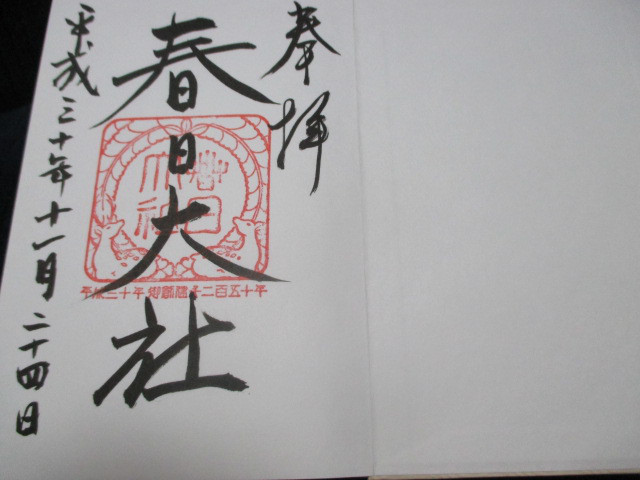 奉拝
春日大社
平成三十年十一月二十四日
春日大社
平成三十年 御創建千二百五十年